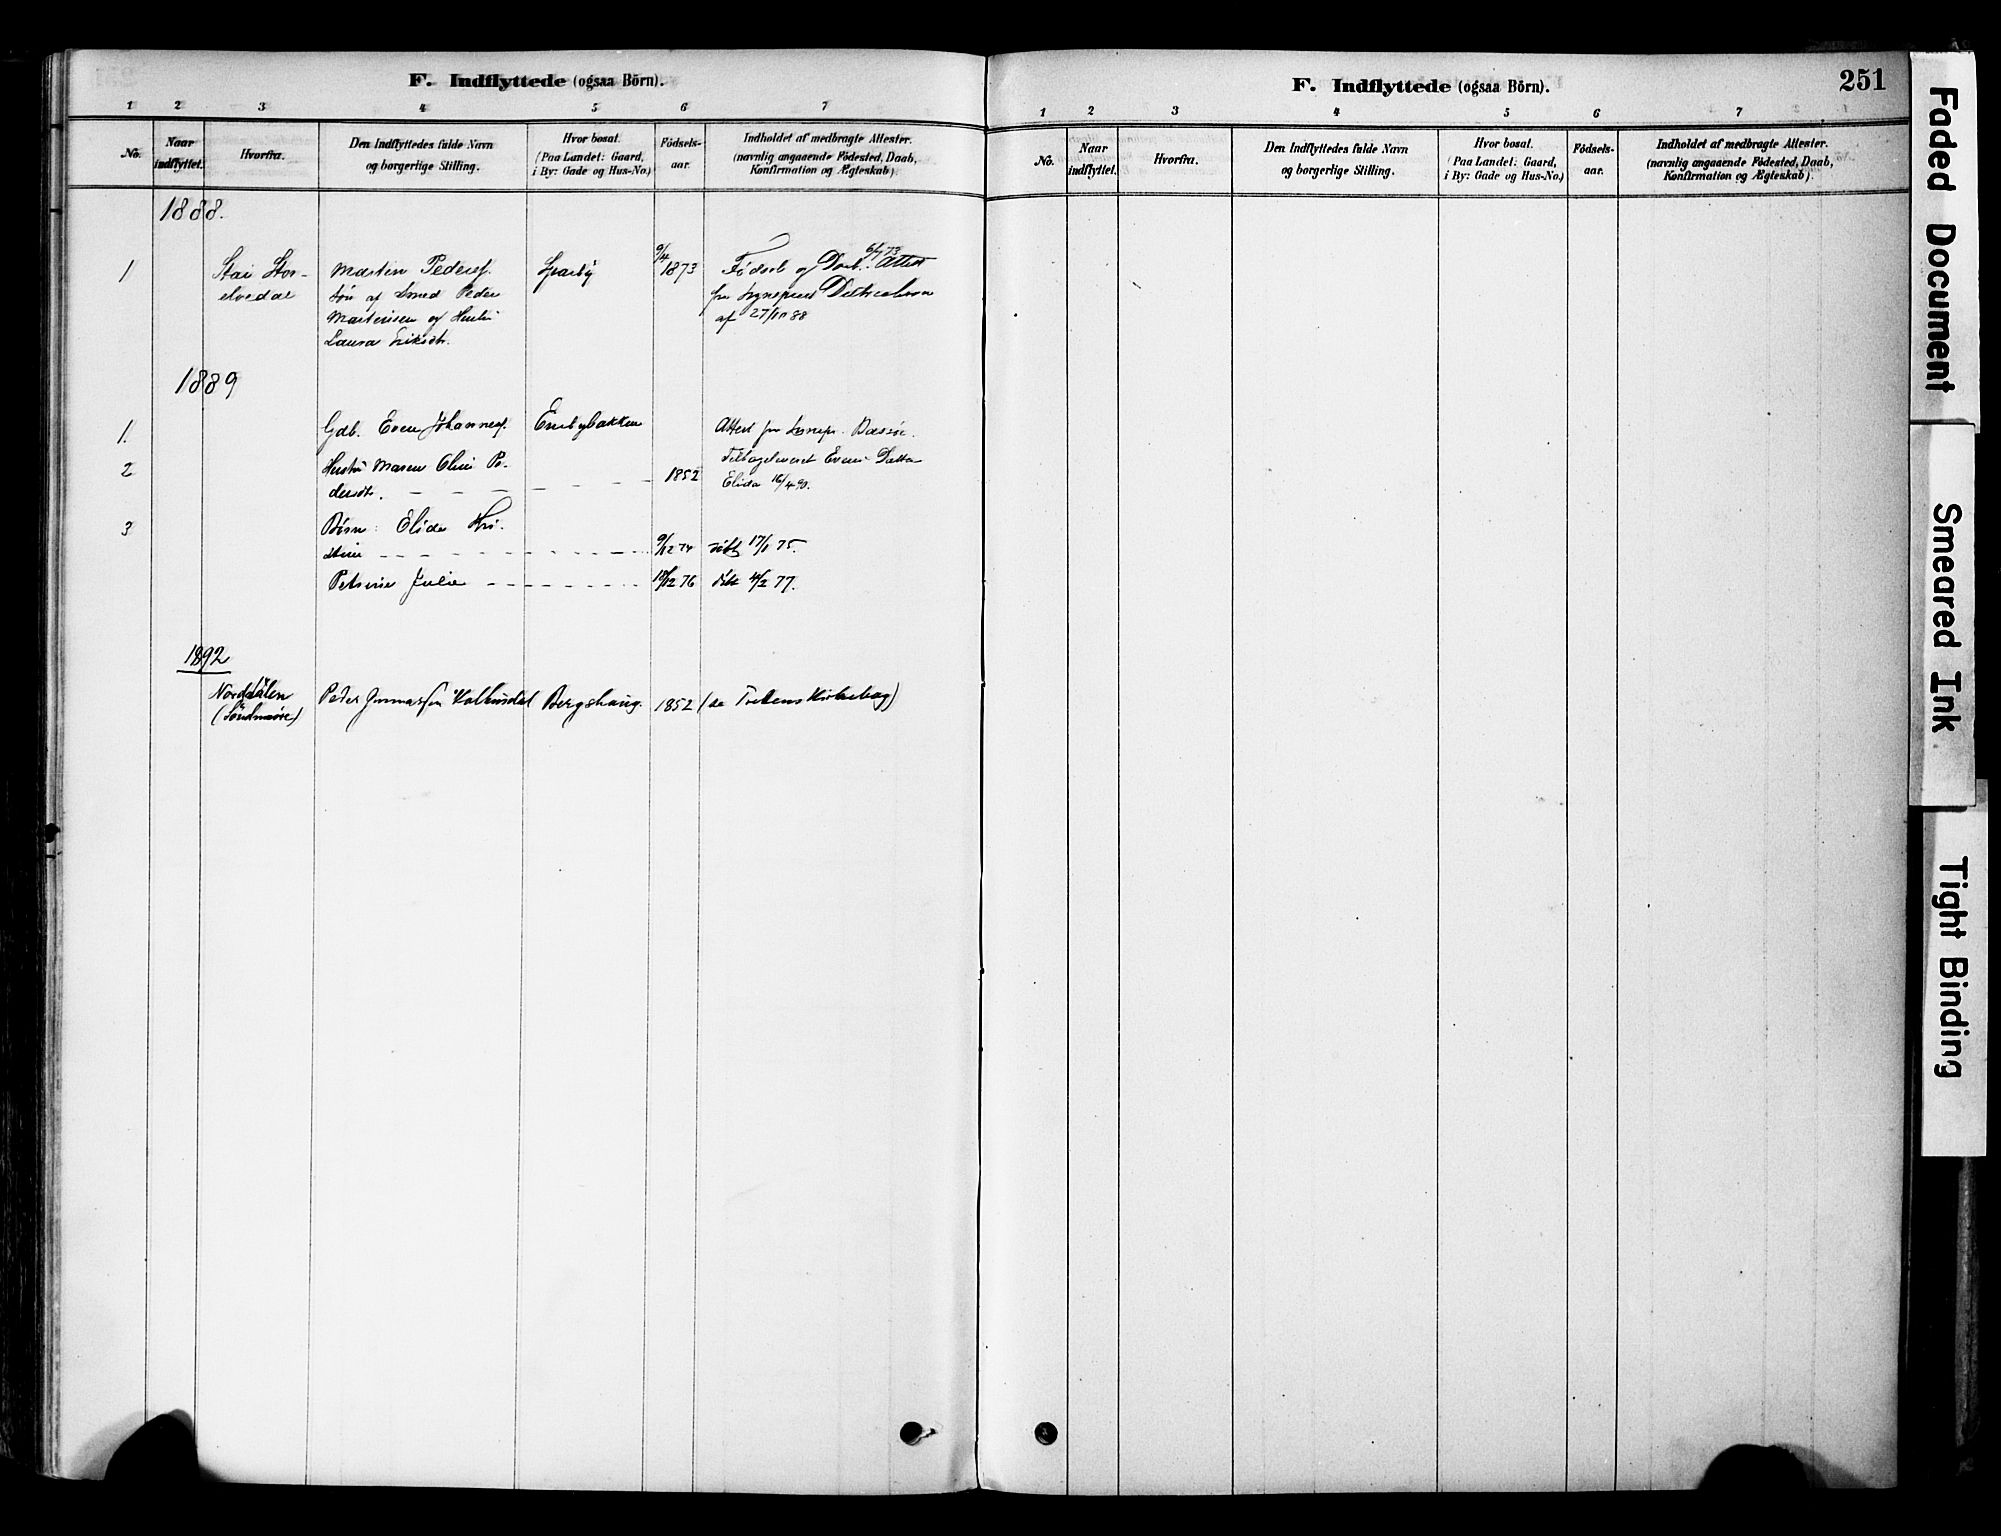 F. Indflyttede (ogsaa Börn).
1 2 3 4 5 6 7
No. Naar indflyttet. Hvorfra. Den Indflyttedes fulde Navn og borgerlige Stilling. Hvor bosat. (Paa Landet: Gaard, i By: Gade og Hus-No.) Födsels-aar. Indholdet af medbragte Attester. (navnlig angaaende Födested, Daab, Konfirmation og Ægteskab).
1888.
1 Stai Stor- Martin Peders. 1873 Födsels og Daab. Attest
elvedal Søn af Smed Peder fra Sognepræst
Martinsen og Hustru af 27/11 88
Laura Eriksdtr.
1889
1. Gdb. Even Johannes. Enebybakken Attest fra Sognepr.
2 Hustru Maren Oline Pe- 1852 Even
dersdtr. Elida 16/4 90.
3 Børn: Elida Kri-
stine 9/12 74 døbt 17/1 75.
Petrine Julie 76 døbt 77.
1892
Norddalen Peder Gunnarsen Bergshaug. 1852 (se Tretens Kirkebog)
(Søndmøre)
F. Indflyttede (ogsaa Börn). 251
1 2 3 4 5 6 7
No. Naar indflyttet. Hvorfra. Den Indflyttedes fulde Navn og borgerlige Stilling. Hvor bosat. (Paa Landet: Gaard, i By: Gade og Hus-No.) Födsels-aar. Indholdet af medbragte Attester. (navnlig angaaende Födested, Daab, Konfirmation og Ægteskab).
Faded Document
Smeared Ink
Tight Binding